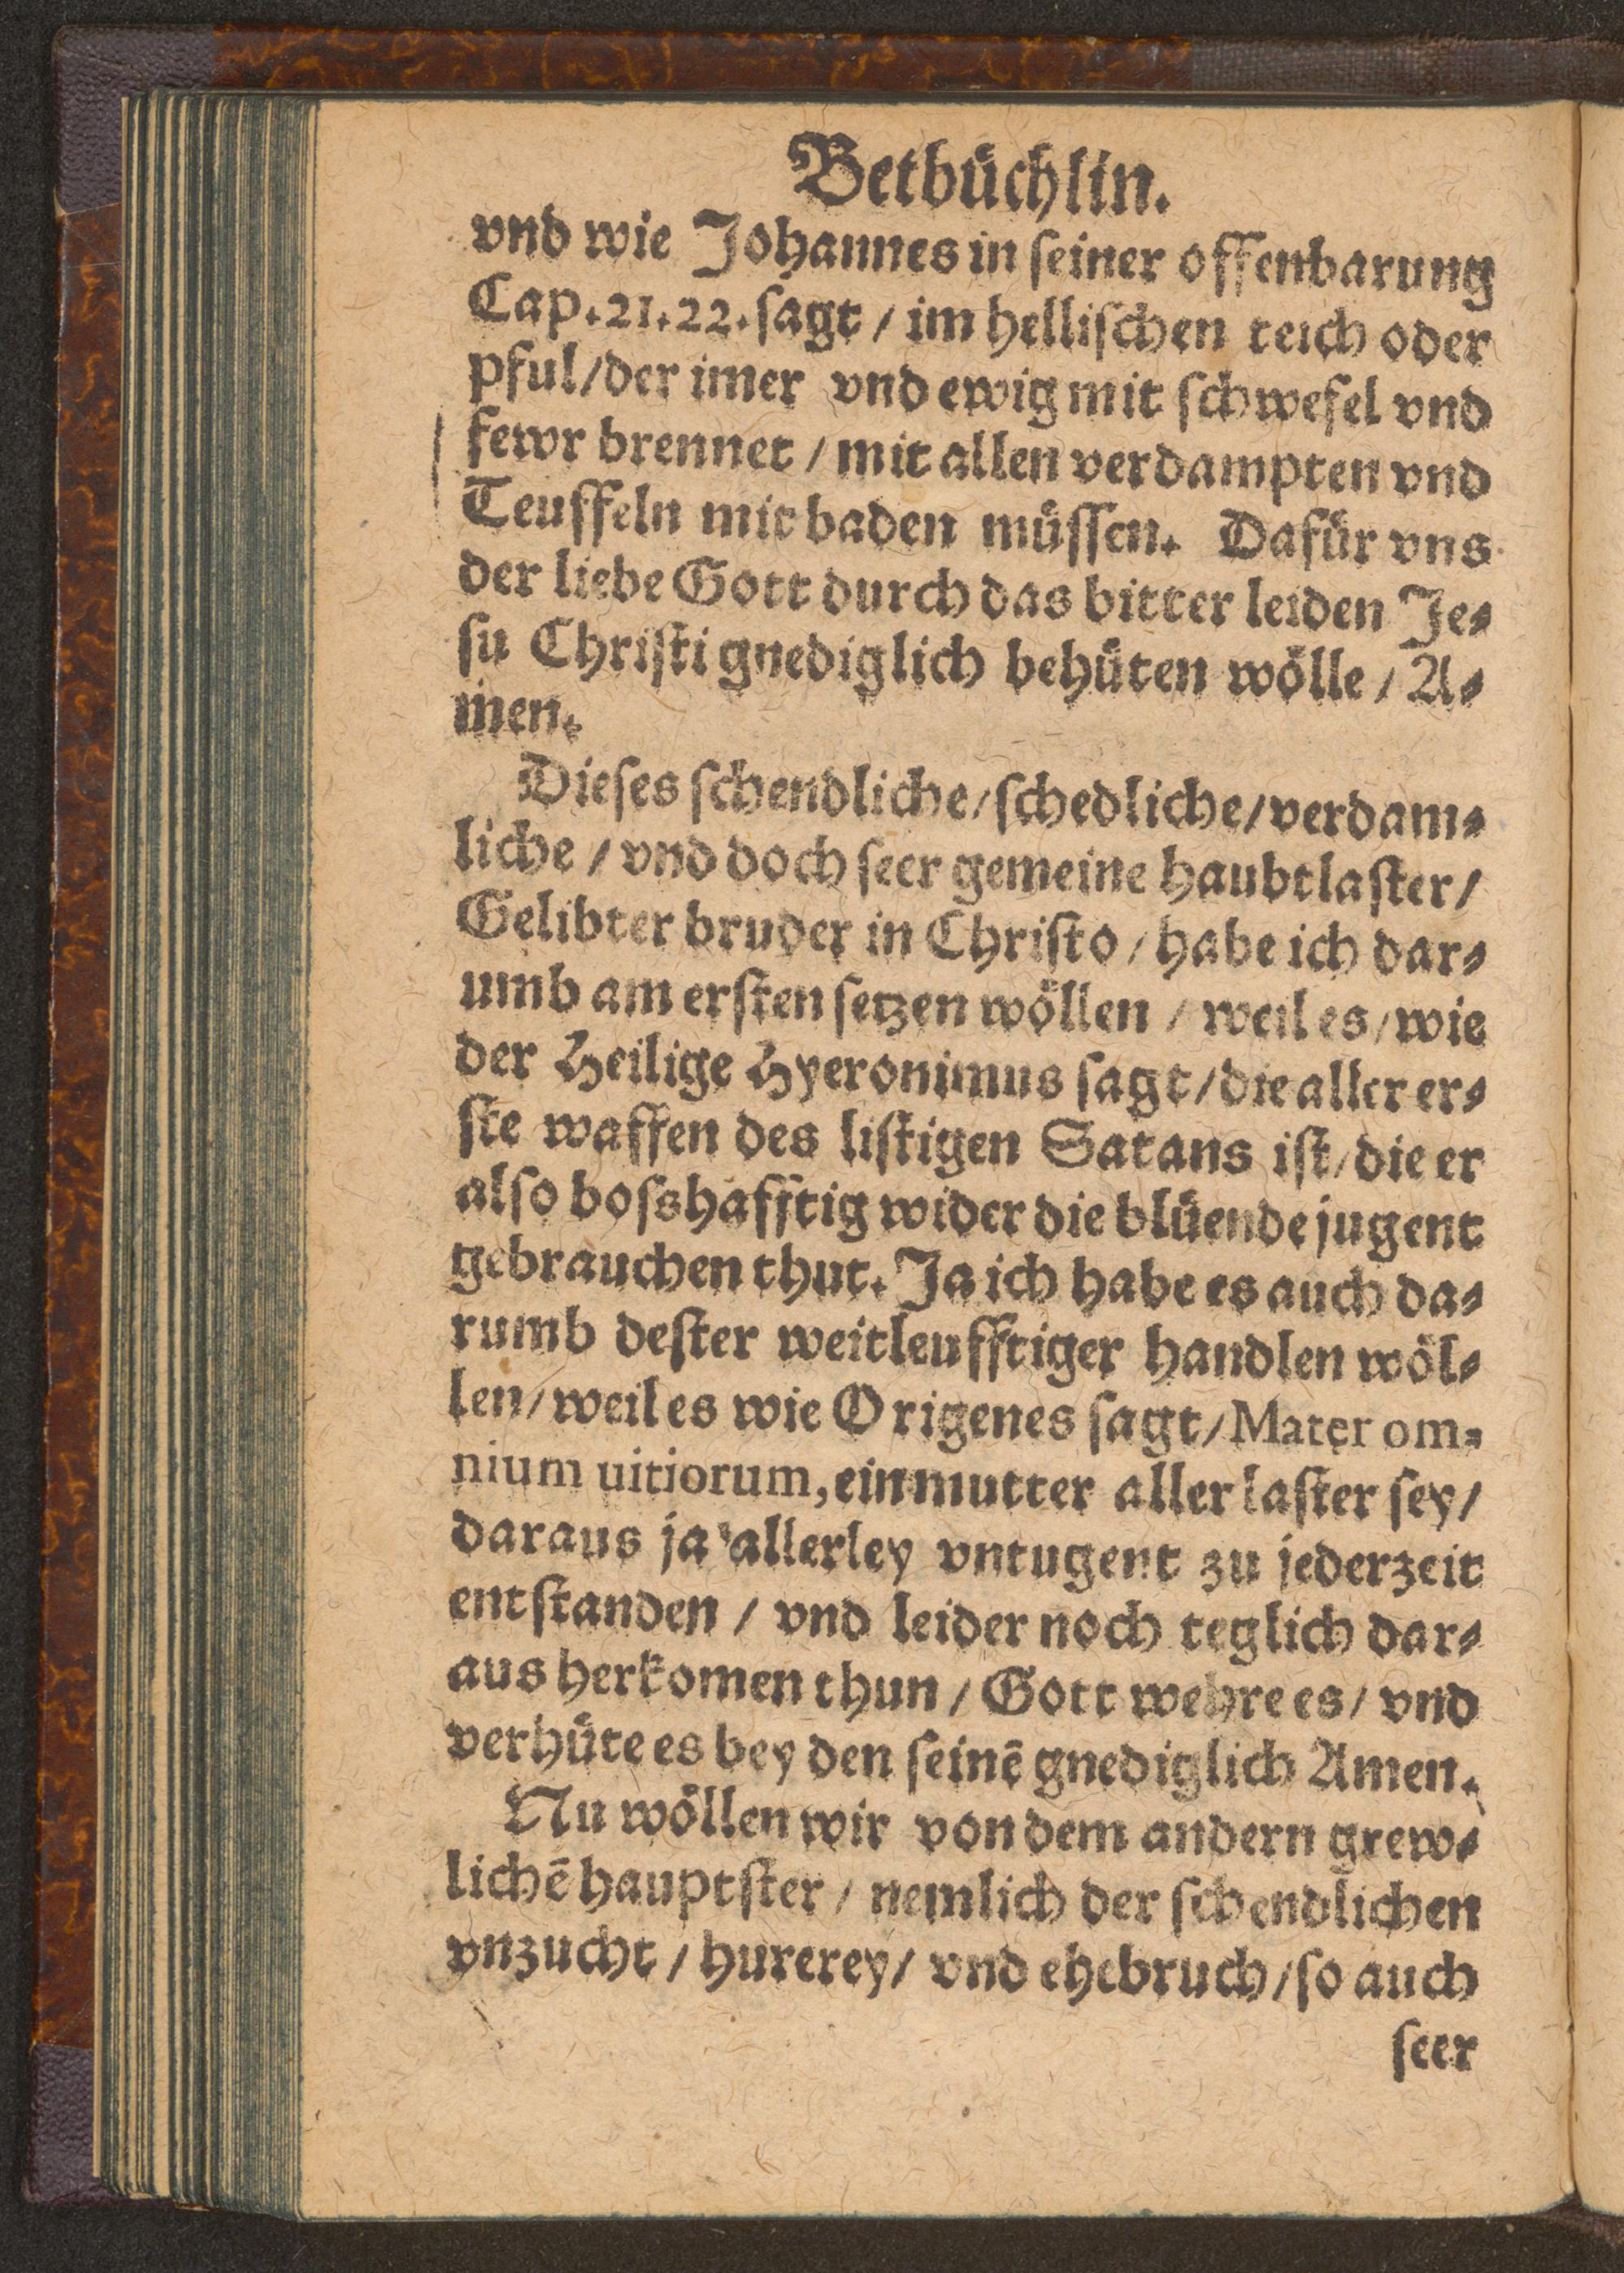 Betbüchlin.
vnd wie Johannes in seiner offenbarung
Cap. 21. 22. sagt / im hellischen teich oder
pful / der imer vnd ewig mit schwefel vnd
fewr brennet / mit allen verdampten vnd
Teuffeln mit baden müssen. Dafür vns
der liebe Gott durch das bitter leiden Je⸗
su Christi gnediglich behüten wölle / A⸗
men.
Dieses schendliche / schedliche / verdam⸗
liche / vnd doch seer gemeine haubtlaster /
Gelibter bruder in Christo / habe ich dar⸗
umb am ersten setzen wöllen / weil es / wie
der Heilige Hyeronimus sagt / die aller er⸗
ste waffen des listigen Satans ist / die er
also bosshafftig wider die blüende jugent
gebrauchen thut. Ja ich habe es auch da⸗
rumb dester weitleufftiger handlen wöl⸗
len / weil es wie Origenes sagt / Mater om⸗
nium uitiorum, ein mutter aller laster sey /
daraus ja allerley vntugent zu jederzeit
entstanden / vnd leider noch teglich dar⸗
aus herkomen thun / Gott wehre es / vnd
verhüte es bey den seinē gnediglich Amen.
Nu wöllen wir von dem andern grew⸗
lichē hauptster / nemlich der schendlichen
vnzucht / hurerey / vnd ehebruch / so auch
seer